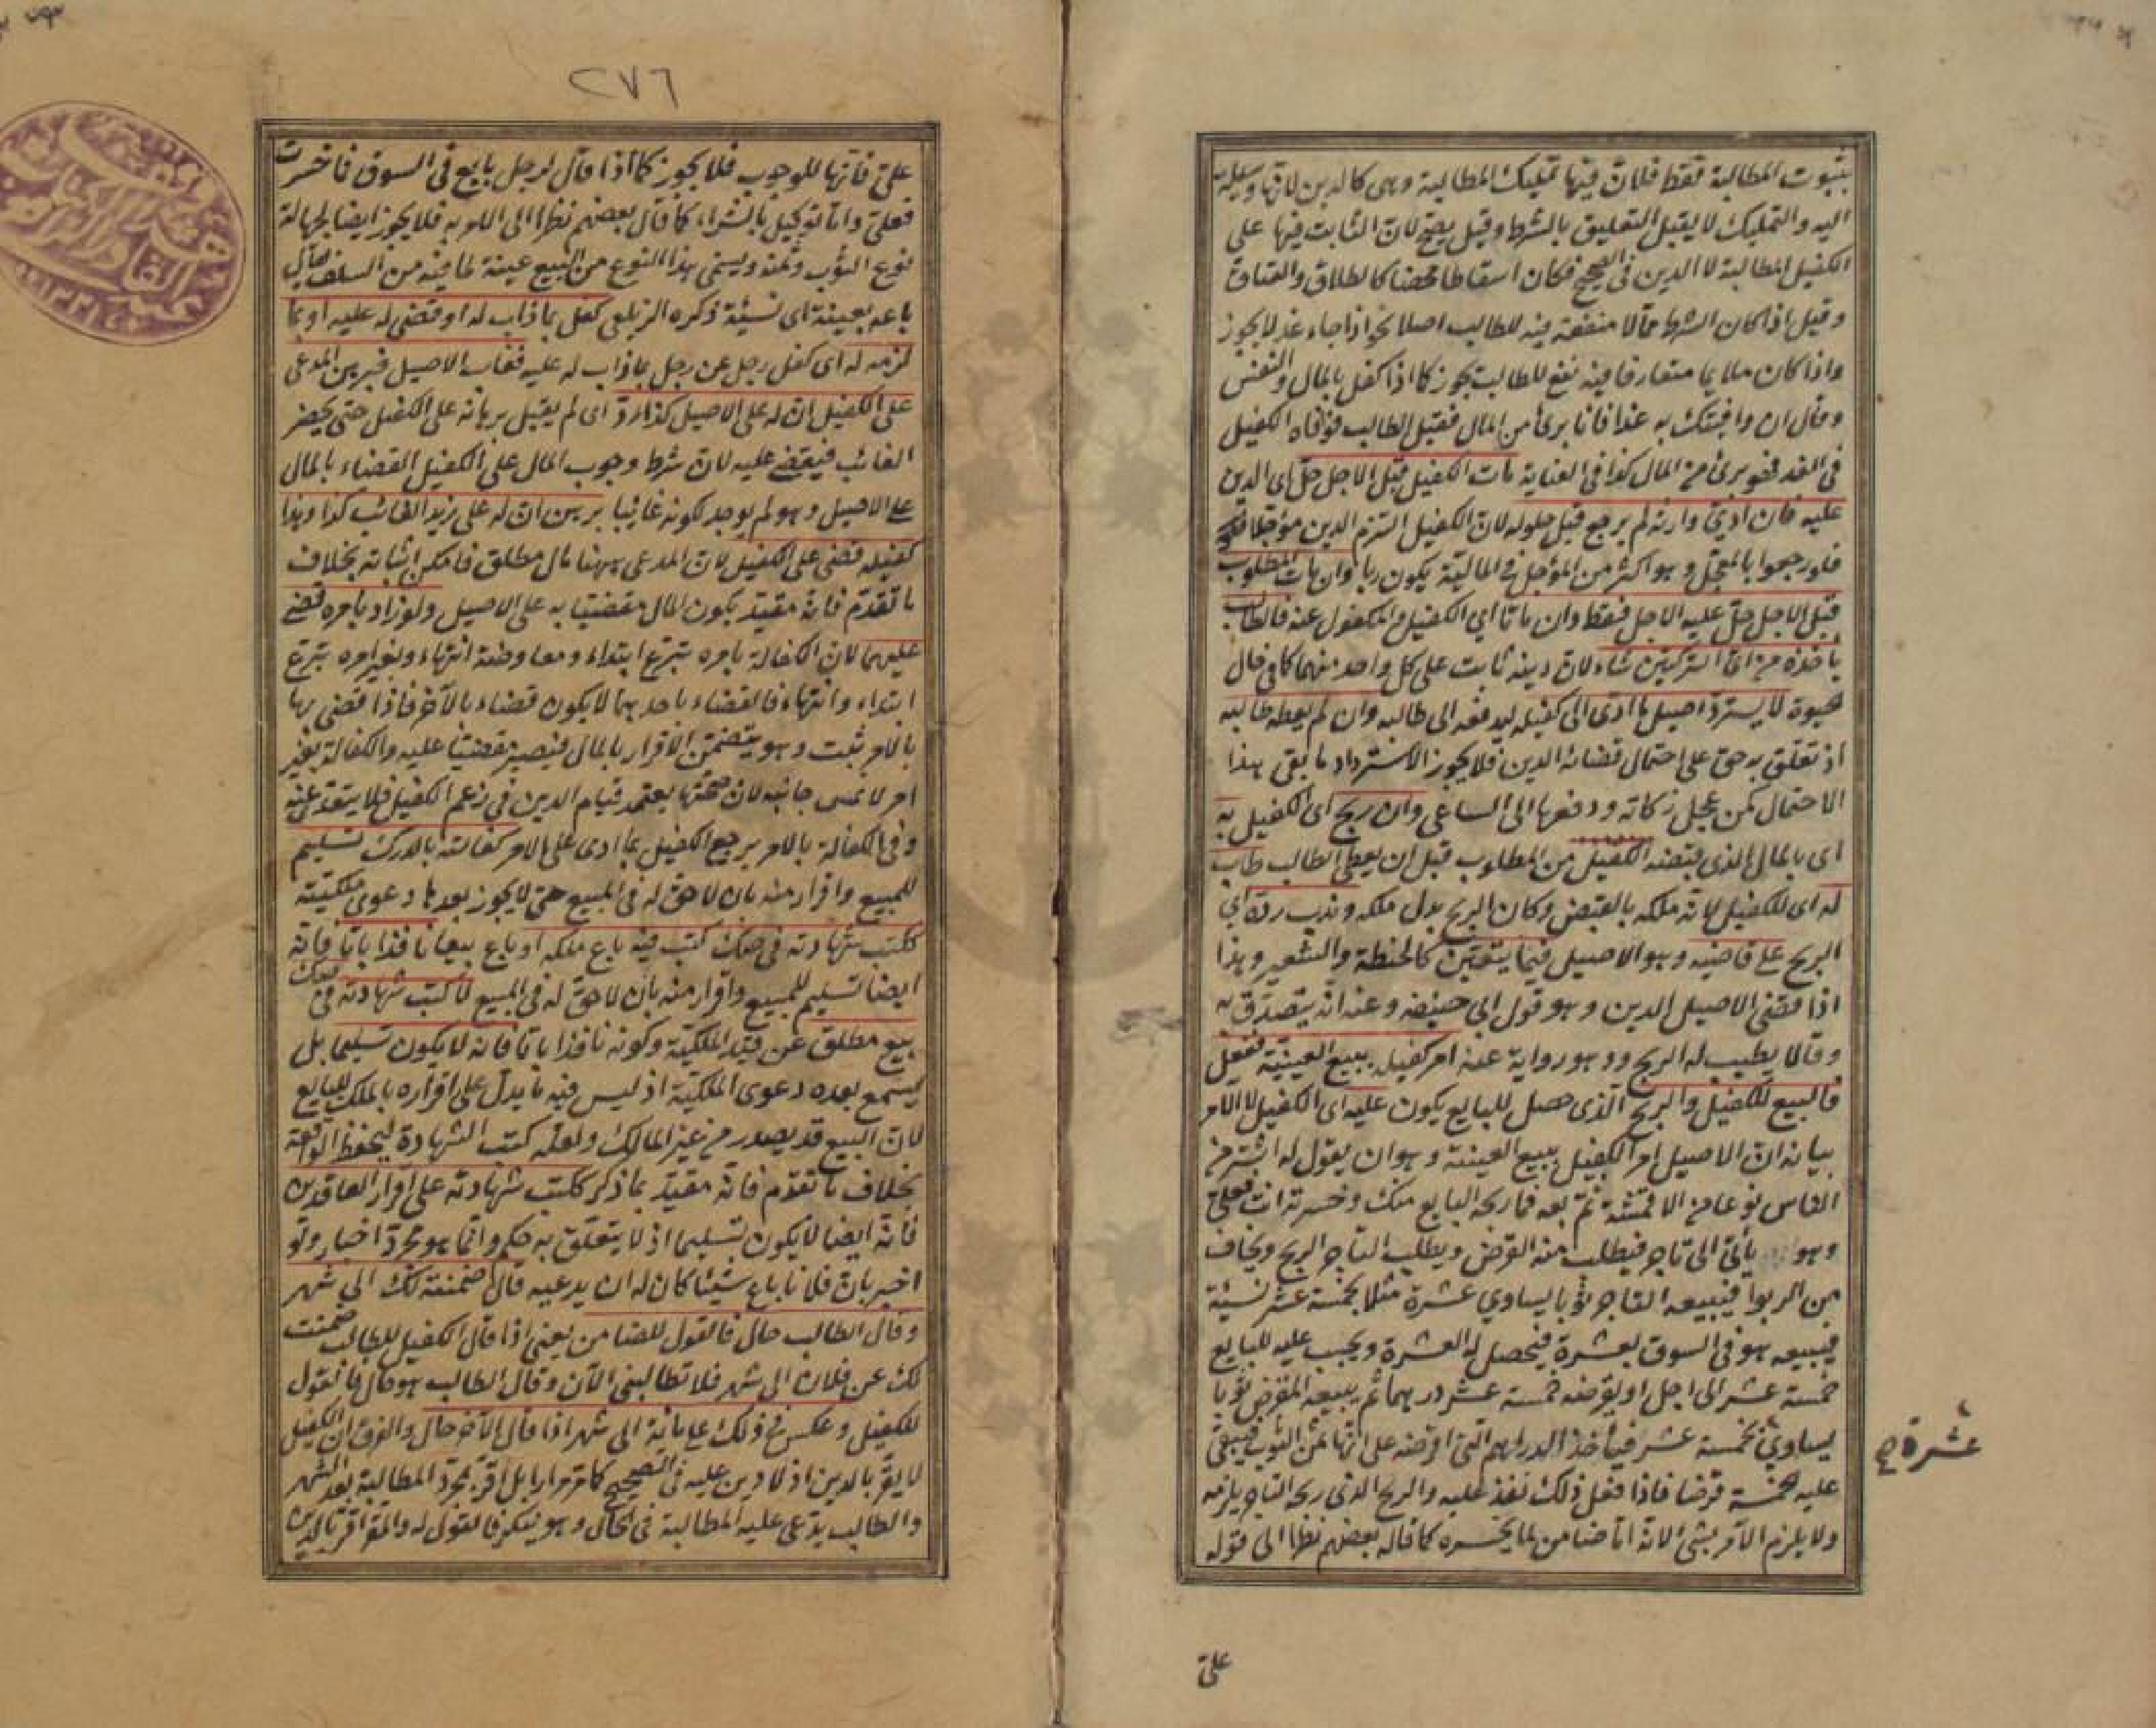 بثبوت المطالبة فقط فلان فيها تمليك المطالبة وهى كالدين لانها وسيلة
اليه والتمليك لا يقبل التعليق بالشرط وقيل يصح لان الثابت فيها على
الكفيل المطالبة لا الدين فى الصحيح فكان اسقاطا محضا كالطلاق والعتاق
وقيل اذا كان الشرط مما لا منفعة فيه للطالب اصلا نحو اذا جاء غد لا يجوز
واذا كان ملايما متعارفا فيه نفع للطالب يجوز كما اذا كفل بالمال والنفس
وقال ان وافيتك به غدا فانا برئ من المال فقبل الطالب فوافاه الكفيل
فى الغد فهو برئ من المال كذا فى العناية مات الكفيل قبل الاجل حل اى الدين
عليه فان ادى وارثه لم يرجع قبل حلوله لان الكفيل التزم الدين مؤجلا
فلو رجعوا بالمعجل وهو اكثر من المؤجل فى المالية يكون ربا وان مات المطلوب
قبل الاجل حل عليه الاجل فقط وان ماتا اى الكفيل والمكفول عنه فالطالب
ياخذه من اى التركتين شاء لان دينه ثابت على كل واحد منهما كما فى حال
حيوة لا يسترد اصيل ما ادى الى كفيله ليدفعه الى طالبه وان لم يعطه طالبه
اذ تعلق به حق على احتمال قضائه الدين فلا يجوز الاسترداد ما بقى هذا
الاحتمال كمن عجل زكاته ودفعها الى الساعى وان ربح اى الكفيل به
اى بالمال الذى قبضه الكفيل من المطلوب قبل ان يعطى الطالب طاب
له اى للكفيل لانه ملكه بالقبض وكان الربح بدل ملكه وندب رده اى
الربح على قاضيه وهو الاصيل فيما يتعين كالحنطة والشعير وهذا
اذا قضى الاصيل الدين وهو قول ابى حنيفه وعنه انه يتصدق به
وقالا يطيب له الربح وهو رواية عنه امر كفيله ببيع العينة ففعل
فالبيع للكفيل والربح الذى حصل للبايع يكون عليه اى الكفيل لا الامر
بيانه ان الاصيل امر الكفيل ببيع العينة وهو ان يقول له اشتر من
الناس نوعا من الاقمشة ثم بعه فما ربحه البايع منك وخسرته انت فعلى
وهو يأتى الى تاجر فيطلب منه القرض ويطلب التاجر الربح ويخاف
من الربوا فيبيعه التاجر ثوبا يساوى عشرة مثلا بخمسة عشر نسيئة
فيبيعه هو فى السوق بعشرة فيحصل له العشرة ويجب عليه للبايع
خمسة عشر الى اجل او يقرضه خمسة عشر درهما ثم يبيعه المقرض ثوبا
يساوى بخمسة عشر فيأخذ الدراهم التى اقرضه على انها ثمن الثوب فيبقى
عشرة صح
عليه خمسة قرضا فاذا فعل ذلك نفذ عليه والربح الذى ربحه التاجر يلزمه
ولا يلزم الآمر بشئ لانه اما ضامن لما يخسره كما قاله بعضهم نظرا الى قوله
على
٢٧٦
على فانها للوجوب فلا يجوز كما اذا قال لرجل بايع فى السوق فما خسرت
فعلى واما توكيل بالشراء كما قال بعضهم نظرا الى الامر به فلا يجوز ايضا لجهالة
نوع الثوب وثمنه ويسمى هذا النوع من البيع عينة لما فيه من السلف يقال
باعه بعينة اى نسيئة ذكره الزيلعى كفل بما ذاب له او قضى له عليه او بما
لزمه له اى كفل رجل عن رجل بما ذاب له عليه فغاب الاصيل فبرهن المدعى
على الكفيل ان له على الاصيل كذا رد اى لم يقبل برهانه على الكفيل حتى يحضر
الغائب فيقضى عليه لان شرط وجوب المال على الكفيل القضاء بالمال
على الاصيل وهو لم يوجد لكونه غائبا برهن ان له على زيد الغائب كذا وهذا
كفيله قضى على الكفيل لان المدعى ههنا مال مطلق فامكن اثباته بخلاف
ما تقدم فانه مقيد بكون المال مقضيا به على الاصيل ولو زاد بامره قضى
عليهما لان الكفالة بامره تبرع ابتداء ومعاوضة انتهاء وبغير امره تبرع
ابتداء وانتهاء فالقضاء باحدهما لا يكون قضاء بالآخر فاذا قضى بها
بالامر ثبت وهو يتضمن الاقرار بالمال فيصير مقضيا عليه والكفالة بغير
امر لا تمس جانبه لان صحتها يعتمد قيام الدين فى زعم الكفيل فلا يتعدى عنه
وفى الكفالة بالامر يرجع الكفيل بما ادى على الامر كفالته بالدرك تسليم
للمبيع واقرار منه بان لا حق له فى المبيع حتى لا يجوز بعدها دعوى ملكيته
ككتب شهادته فى صك كتب فيه باع ملكه او باع بيعا نافذا باتا فانه
ايضا تسليم للمبيع واقرار منه بان لا حق له فى المبيع لا كتب شهادته فى صك
بيع مطلق عن قيد الملكية وكونه نافذا باتا فانه لا يكون تسليما بل
يسمع بعده دعوى الملكية اذ ليس فيه ما يدل على اقراره بالملك للبايع
لان البيع قد يصدر من غير المالك ولعله كتب الشهادة ليحفظ الواقعة
بخلاف ما تقدم فانه مقيد بما ذكر ككتب شهادته على اقرار العاقدين
فانه ايضا لا يكون تسليما اذ لا يتعلق به حكم وانما هو مجرد اخبار ولو
اخبر بان فلانا باع شيئا كان له ان يدعيه قال ضمنته لك الى شهر
وقال الطالب حال فالقول للضامن يعنى اذا قال الكفيل للطالب ضمنت
لك عن فلان الى شهر فلا تطالبنى الآن وقال الطالب هو حال فالقول
للكفيل وعكس فى ذلك على مائة الى شهر اذا قال الآخر حال والفرق ان الكفيل
لا يقر بالدين اذ لا دين عليه فى الصحيح كما مر مرارا بل اقر بمجرد المطالبة بعد الشهر
والطالب يدعى عليه المطالبة فى الحال وهو ينكر فالقول له والمقر اقر بالدين